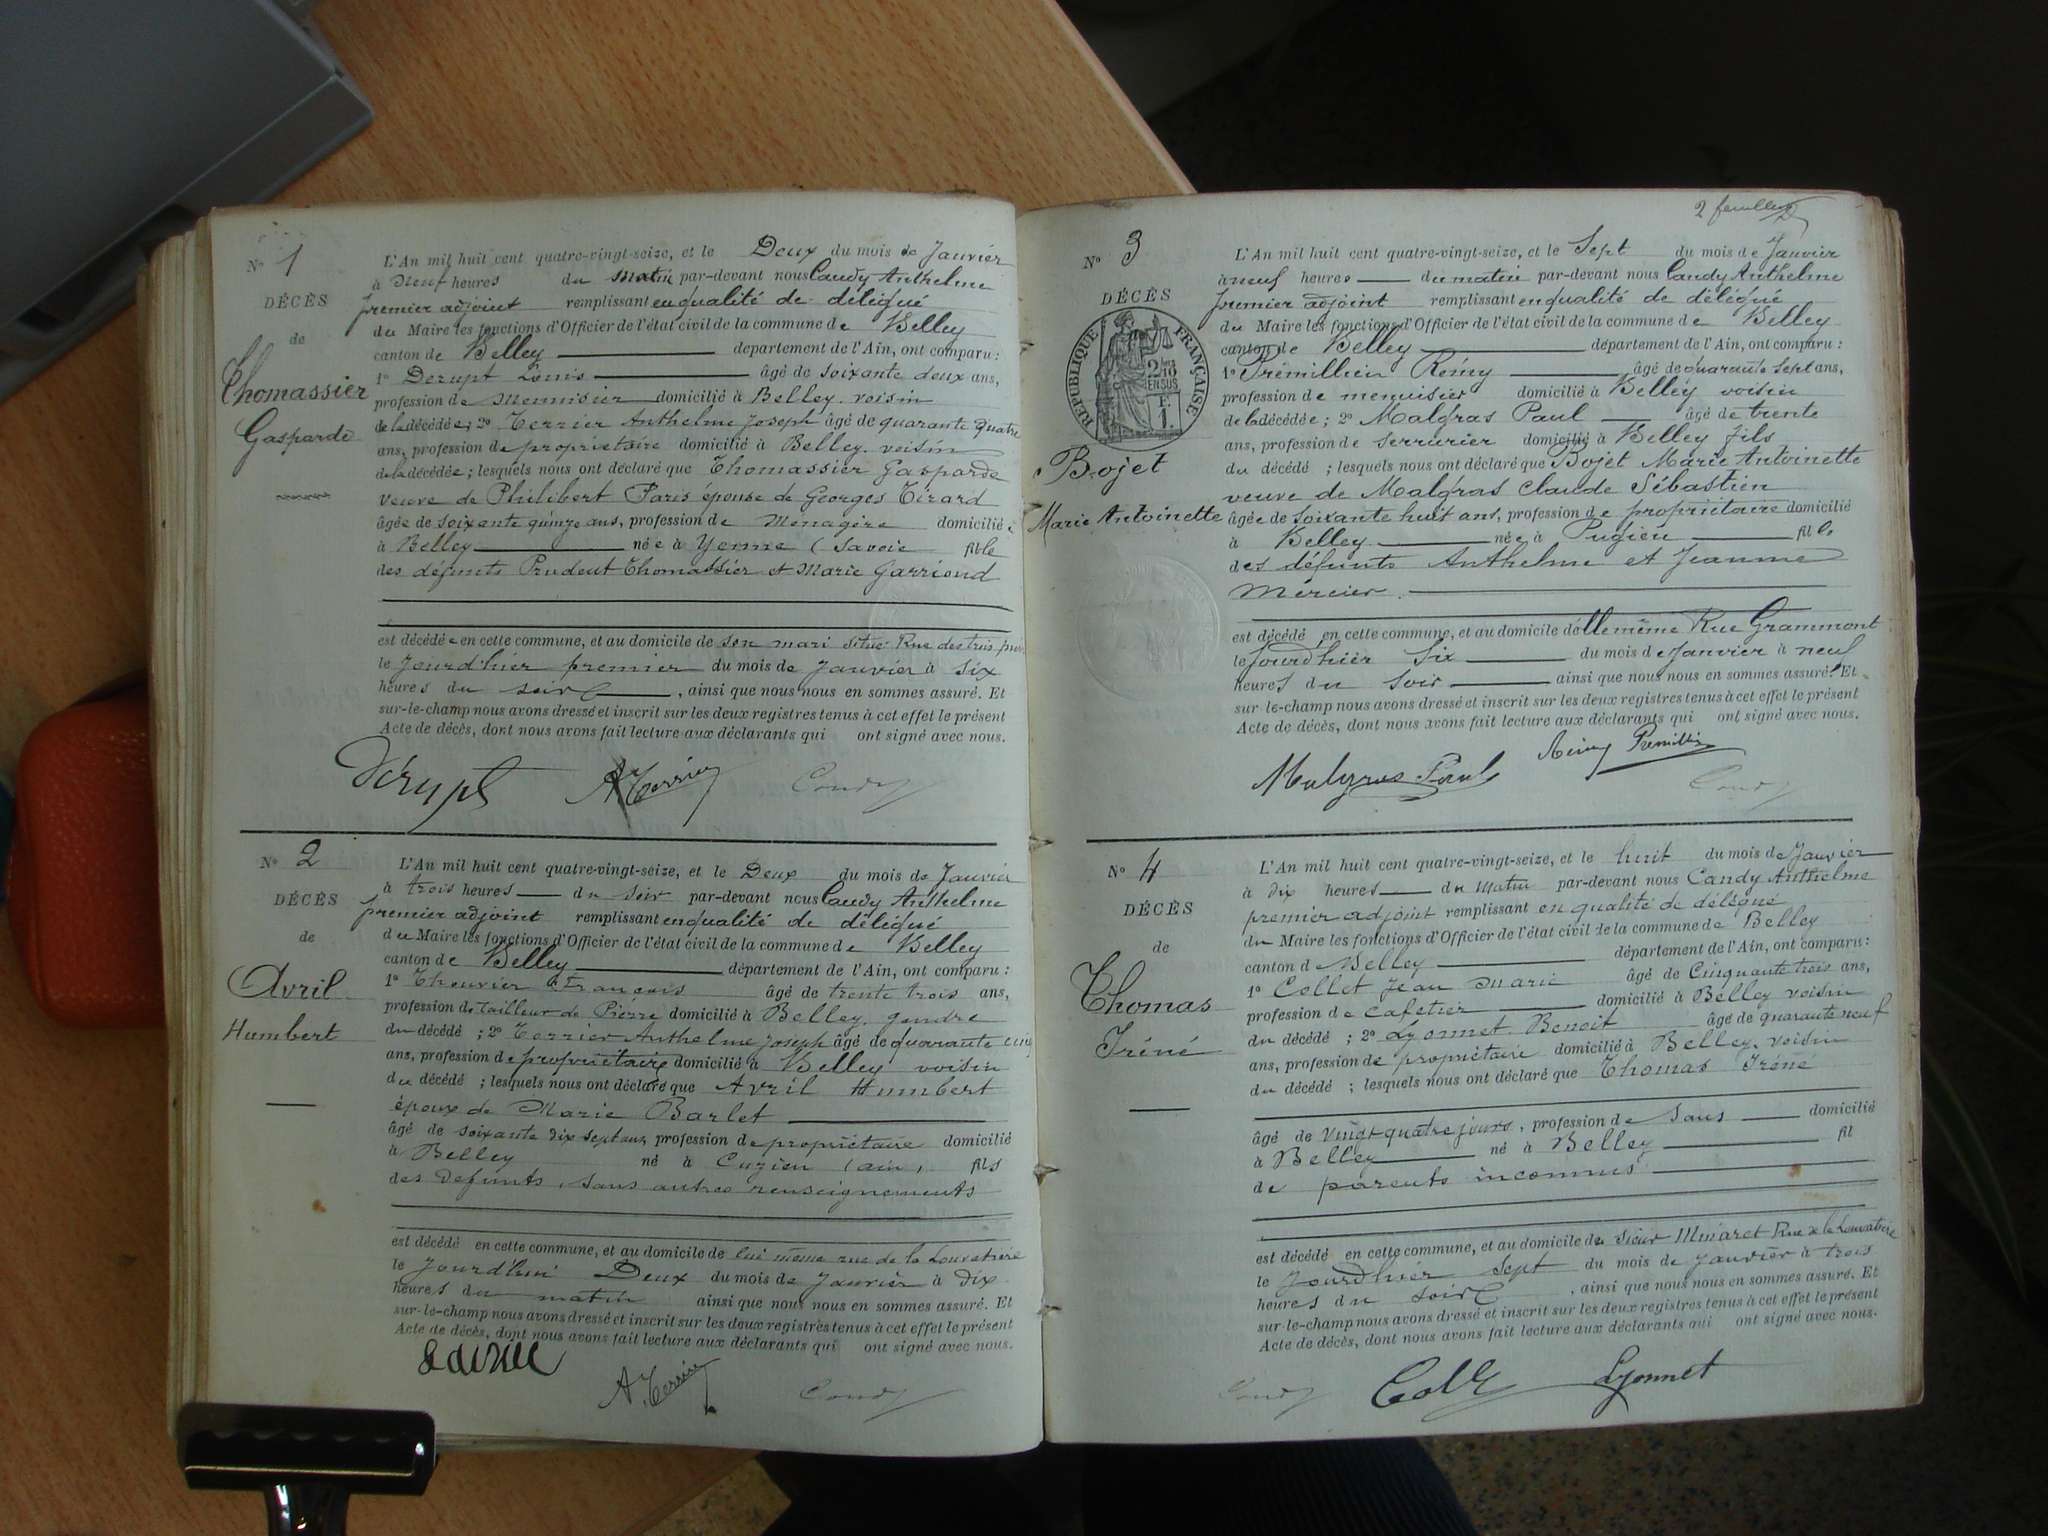 N° 1
DÉCÈS
de
Thomassier
Gasparde
L'An mil huit cent quatre-vingt-seize, et le Deux du mois de Janvier
à Neuf heures du matin par-devant nous Candy Anthelme
premier adjoint remplissant en qualité de délégué
du Maire les fonctions d'Officier de l'état civil de la commune de Belley
canton de Belley département de l'Ain, ont comparu :
1° Derupt Louis âgé de soixante deux ans,
profession de Menuisier domicilié à Belley. voisin
de la décédée; 2° Terrier Anthelme Joseph âgé de quarante quatre
ans, profession de propriétaire domicilié à Belley. voisin
de la décédée ; lesquels nous ont déclaré que Thomassier Gasparde
veuve de Philibert Paris épouse de Georges Tirard
âgée de soixante quinze ans, profession de Menagère domicilié
à Belley née à Yenne (Savoie fille
des défunts Prudent Thomassier et Marie Garriond
est décédé en cette commune, et au domicile de son mari situé Rue des trois
le Jourd'hier premier du mois de Janvier à six
heures du soir , ainsi que nous nous en sommes assuré. Et
sur-le-champ nous avons dressé et inscrit sur les deux registres tenus à cet effet le présent
Acte de décès, dont nous avons fait lecture aux déclarants qui ont signé avec nous.
Dérupt A Terrier Candy
N° 2
DÉCÈS
de
Avril
Humbert
L'An mil huit cent quatre-vingt-seize, et le Deux du mois de Janvier
à trois heures du soir par-devant nous Candy Anthelme
premier adjoint remplissant en qualité de délégué
du Maire les fonctions d'Officier de l'état civil de la commune de Belley
canton de Belley département de l'Ain, ont comparu :
1° Thouvier François âgé de trente trois ans,
profession de Tailleur de Pierre domicilié à Belley. gendre
du décédé ; 2° Terrier Anthelme Joseph âgé de quarante cinq
ans, profession de propriétaire domicilié à Belley voisin
du décédé ; lesquels nous ont déclaré que Avril Humbert
époux de Marie Barlet
âgé de soixante dix sept ans, profession de propriétaire domicilié
à Belley né à Cuzieu (ain) fils
des defunts, sans autres renseignements
est décédé en cette commune, et au domicile de lui même rue de la Louvatière
le Jourd'hui Deux du mois de Janvier à dix
heures du matin ainsi que nous nous en sommes assuré. Et
sur-le-champ nous avons dressé et inscrit sur les deux registres tenus à cet effet le présent
Acte de décès, dont nous avons fait lecture aux déclarants qui ont signé avec nous.
A. Terrier Candy
2 feuillet
N° 3
DÉCÈS
RÉPUBLIQUE FRANÇAISE
2/10
EN SUS
F.
1.
Bojet
Marie Antoinette
L'An mil huit cent quatre-vingt-seize, et le Sept du mois de Janvier
à neuf heures du matin par-devant nous Candy Anthelme
premier adjoint remplissant en qualité de délégué
du Maire les fonctions d'Officier de l'état civil de la commune de Belley
canton de Belley département de l'Ain, ont comparu :
1° Prémillieu Rémy âgé de quarante sept ans,
profession de menuisier domicilié à Belley voisin
de la décédée ; 2° Malgras Paul âgé de trente
ans, profession de serrurier domicilié à Belley fils
du décédé ; lesquels nous ont déclaré que Bojet Marie Antoinette
veuve de Malgras Claude Sébastien
âgée de soixante huit ans, profession de propriétaire domicilié
à Belley née à Pugieu fille
des défunts Anthelme et Jeanne
Mercier.
est décédé en cette commune, et au domicile d'elle même Rue Grammont
le Jourdhier Six du mois de Janvier à neuf
heures du soir ainsi que nous nous en sommes assuré. Et
sur-le-champ nous avons dressé et inscrit sur les deux registres tenus à cet effet le présent
Acte de décès, dont nous avons fait lecture aux déclarants qui ont signé avec nous.
Malgras Paul Rémy Prémillieu Candy
N° 4
DÉCÈS
de
Thomas
Iréné
L'An mil huit cent quatre-vingt-seize, et le huit du mois de Janvier
à dix heures du Matin par-devant nous Candy Anthelme
premier adjoint remplissant en qualité de délégué
du Maire les fonctions d'Officier de l'état civil de la commune de Belley
canton de Belley département de l'Ain, ont comparu :
1° Collet Jean Marie âgé de Cinquante trois ans,
profession de cafetier domicilié à Belley voisin
du décédé ; 2° Lyonnet Benoit âgé de quarante neuf
ans, profession de propriétaire domicilié à Belley. voisin
du décédé ; lesquels nous ont déclaré que Thomas Iréné
âgé de vingt quatre jours, profession de sans domicilié
à Belley né à Belley fil
de parents inconnus
est décédé en cette commune, et au domicile du Sieur Minaret Rue de la Louvatière
le Jourdhier sept du mois de Janvier à trois
heures du soir , ainsi que nous nous en sommes assuré. Et
sur-le-champ nous avons dressé et inscrit sur les deux registres tenus à cet effet le présent
Acte de décès, dont nous avons fait lecture aux déclarants qui ont signé avec nous.
Candy Collet Lyonnet